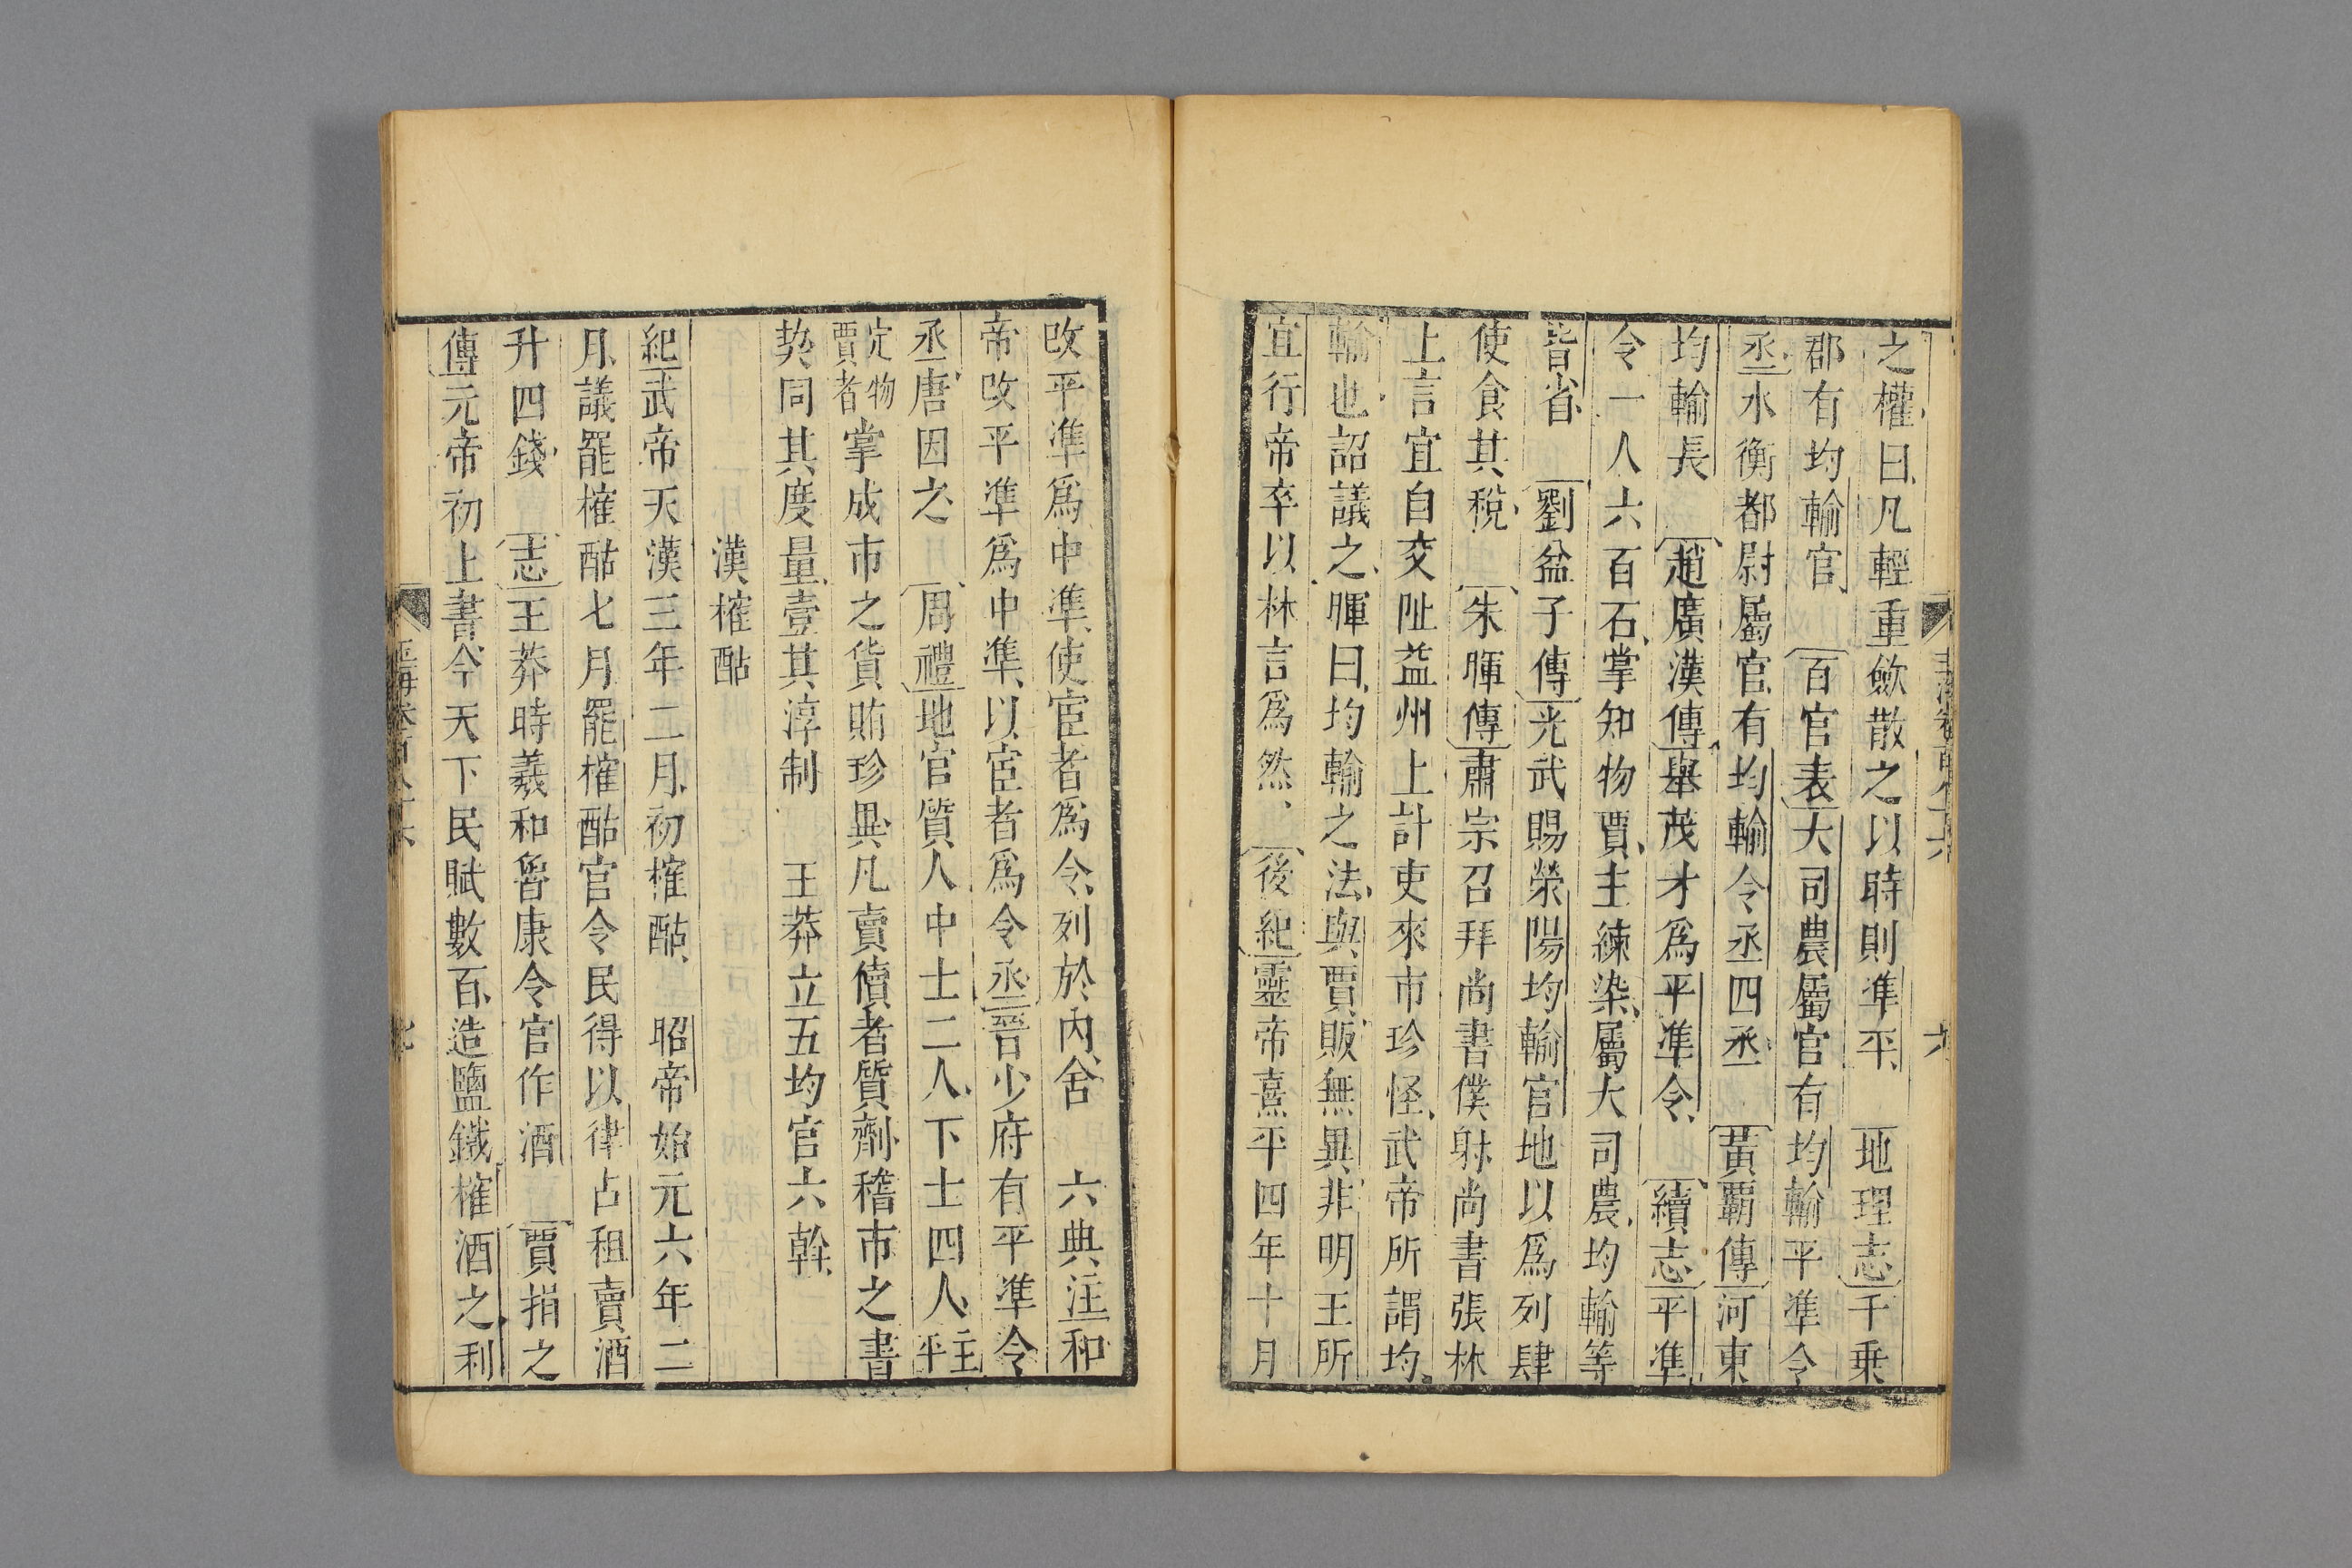 之權曰凡輕重斂散之以時則準平 地理志千乗
郡有均輸官 百官表大司農屬官有均輸平準令
丞水衡都尉屬官有均輸令丞四丞 黃霸傳河東
均輸長 趙廣漢傳舉茂才爲平準令 續志平準
令一人六百石掌知物賈主練染屬大司農均輸等
皆省 劉盆子傳光武賜榮陽均輸官地以爲列肆
使食其稅 朱暉傳肅宗召拜尚書僕射尚書張林
上言宜自交阯益州上計吏來市珍怪武帝所謂均
輸也詔議之暉曰均輸之法與賈販無異非明王所
宜行帝卒以林言爲然 後紀靈帝熹平四年十月
改平準爲中準使宦者爲令列於內舍 六典注和
帝改平準爲中準以宦者爲令丞晉少府有平準令
丞唐因之 周禮地官質人中士二人下士四人主平
定物賈者掌成市之貨賄珍異凡賣儥者質劑稽市之書
契同其度量壹其淳制 王莽立五均官六幹
漢榷酤
紀武帝天漢三年二月初榷酤 昭帝始元六年二
月議罷榷酤七月罷榷酤官令民得以律占租賣酒
升四錢 志王莽時羲和魯康令官作酒 賈捐之
傳元帝初上書今天下民賦數百造鹽鐵榷酒之利